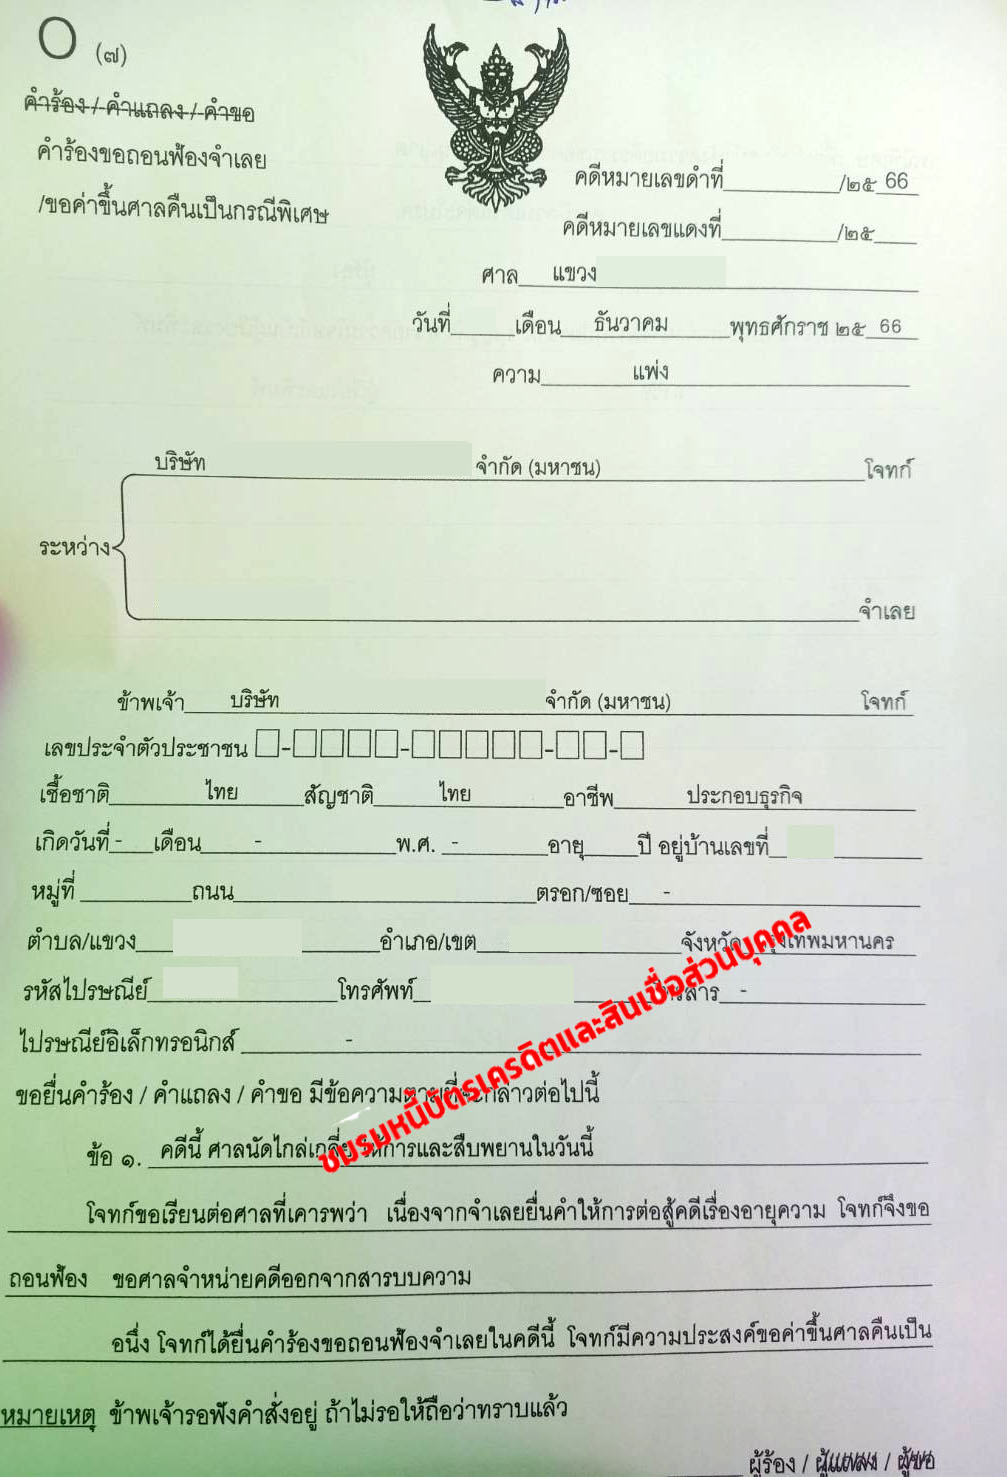 (๗)
คำร้อง / คำแถลง / คำขอ
คำร้องขอถอนฟ้องจำเลย
/ขอค่าขึ้นศาลคืนเป็นกรณีพิเศษ
คดีหมายเลขดำที่ /๒๕ 66
คดีหมายเลขแดงที่ /๒๕
ศาล แขวง
วันที่ เดือน ธันวาคม พุทธศักราช ๒๕ 66
ความ แพ่ง
บริษัท จำกัด (มหาชน) โจทก์
ระหว่าง
จำเลย
ข้าพเจ้า บริษัท จำกัด (มหาชน) โจทก์
เลขประจำตัวประชาชน
เชื้อชาติ ไทย สัญชาติ ไทย อาชีพ ประกอบธุรกิจ
เกิดวันที่ - เดือน - พ.ศ. - อายุ ปี อยู่บ้านเลขที่
หมู่ที่ ถนน ตรอก/ซอย -
ตำบล/แขวง อำเภอ/เขต จังหวัด กรุงเทพมหานคร
รหัสไปรษณีย์ โทรศัพท์ โทรสาร -
ไปรษณีย์อิเล็กทรอนิกส์ -
ขอยื่นคำร้อง / คำแถลง / คำขอ มีข้อความตามที่จะกล่าวต่อไปนี้
ชมรมหนี้บัตรเครดิตและสินเชื่อส่วนบุคคล
ข้อ ๑. คดีนี้ ศาลนัดไกล่เกลี่ย ให้การและสืบพยานในวันนี้
โจทก์ขอเรียนต่อศาลที่เคารพว่า เนื่องจากจำเลยยื่นคำให้การต่อสู้คดีเรื่องอายุความ โจทก์จึงขอ
ถอนฟ้อง ขอศาลจำหน่ายคดีออกจากสารบบความ
อนึ่ง โจทก์ได้ยื่นคำร้องขอถอนฟ้องจำเลยในคดีนี้ โจทก์มีความประสงค์ขอค่าขึ้นศาลคืนเป็น
หมายเหตุ ข้าพเจ้ารอฟังคำสั่งอยู่ ถ้าไม่รอให้ถือว่าทราบแล้ว
ผู้ร้อง / ผู้แถลง / ผู้ขอ